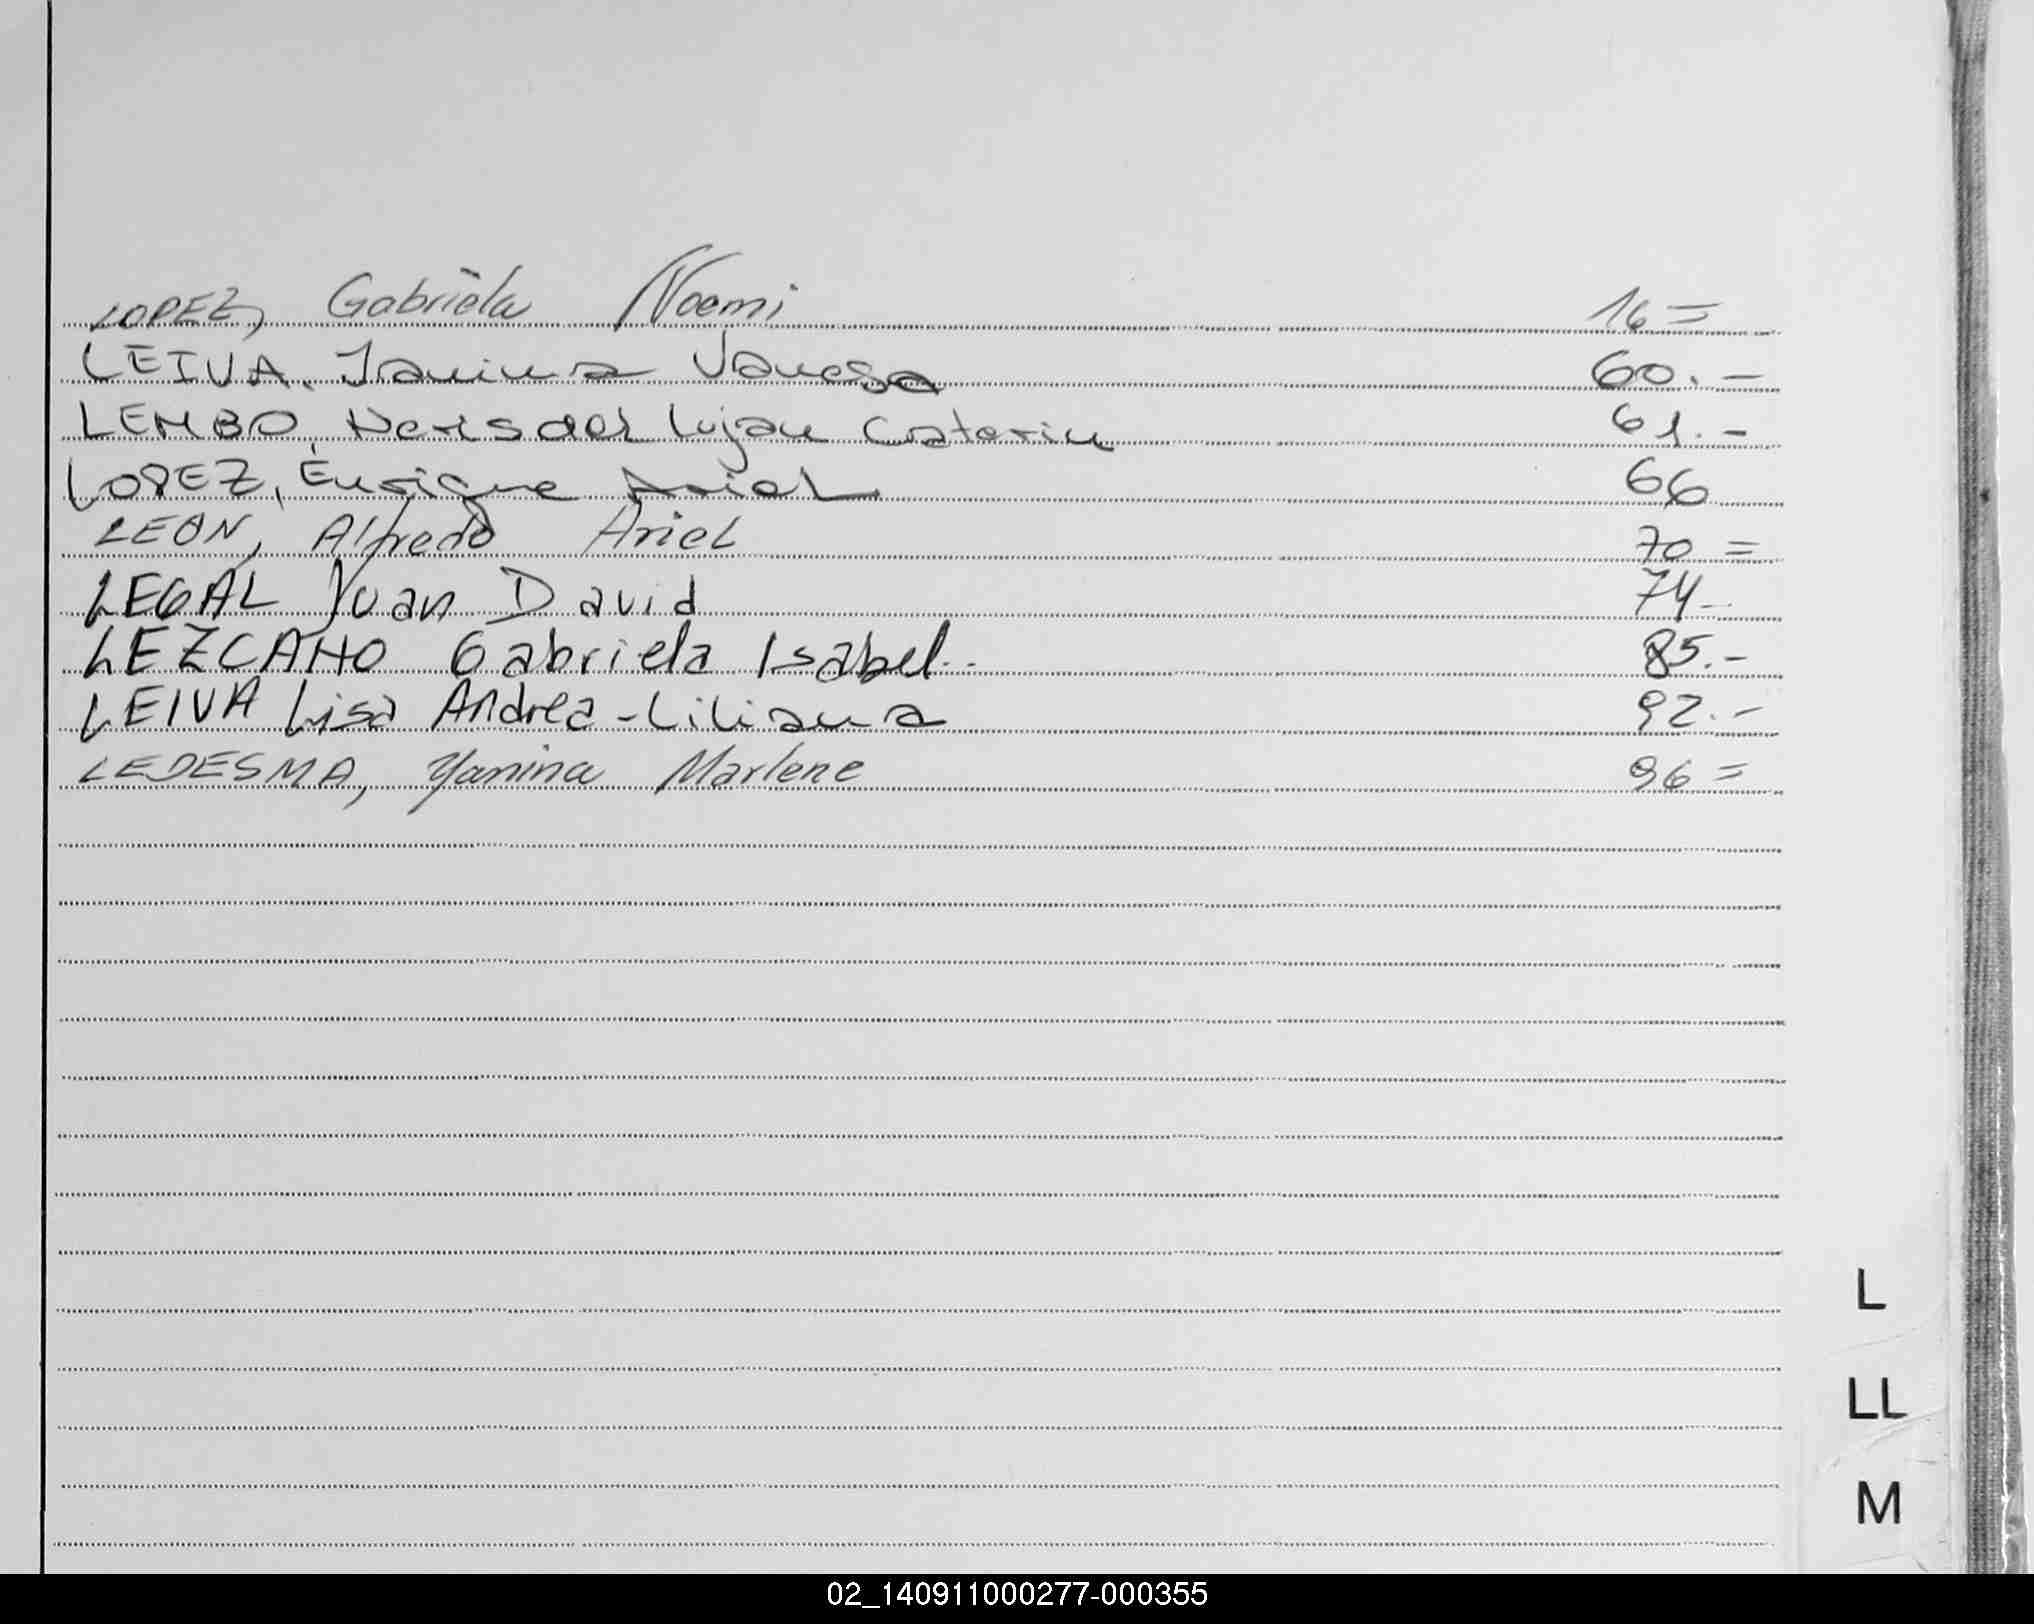 LOPEZ, Gabriela Noemi 16=
LEIVA. Janina Vanesa 60.-
LEMBO, del Lujan Catarin 61.-
LOPEZ, Enrique Ariel 66
LEON, Alfredo Ariel 70=
LEGAL Juan David 74-
LEZCANO Gabriela Isabel.. 85.-
LEIVA Lisa Andrea-Liliana 92.-
LEDESMA, Yanina Marlene 96=
L
LL
M
02_140911000277-000355